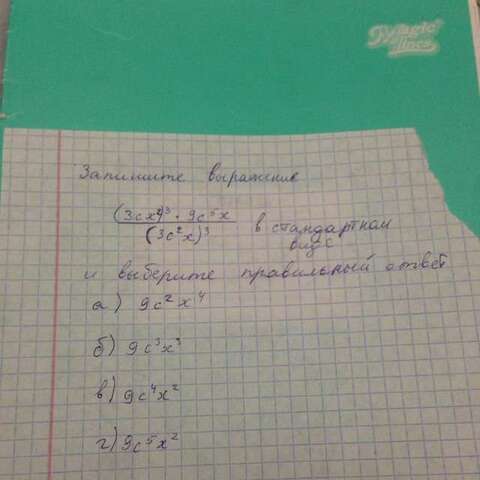 Magic lines
Запишите выражение
(3cx²)³ · 9c⁵x
(3c²x)³
в стандартном
виде
и выберите правильный ответ
а) 9c²x⁴
б) 9c³x³
в) 9c⁴x²
г) 9c⁵x²